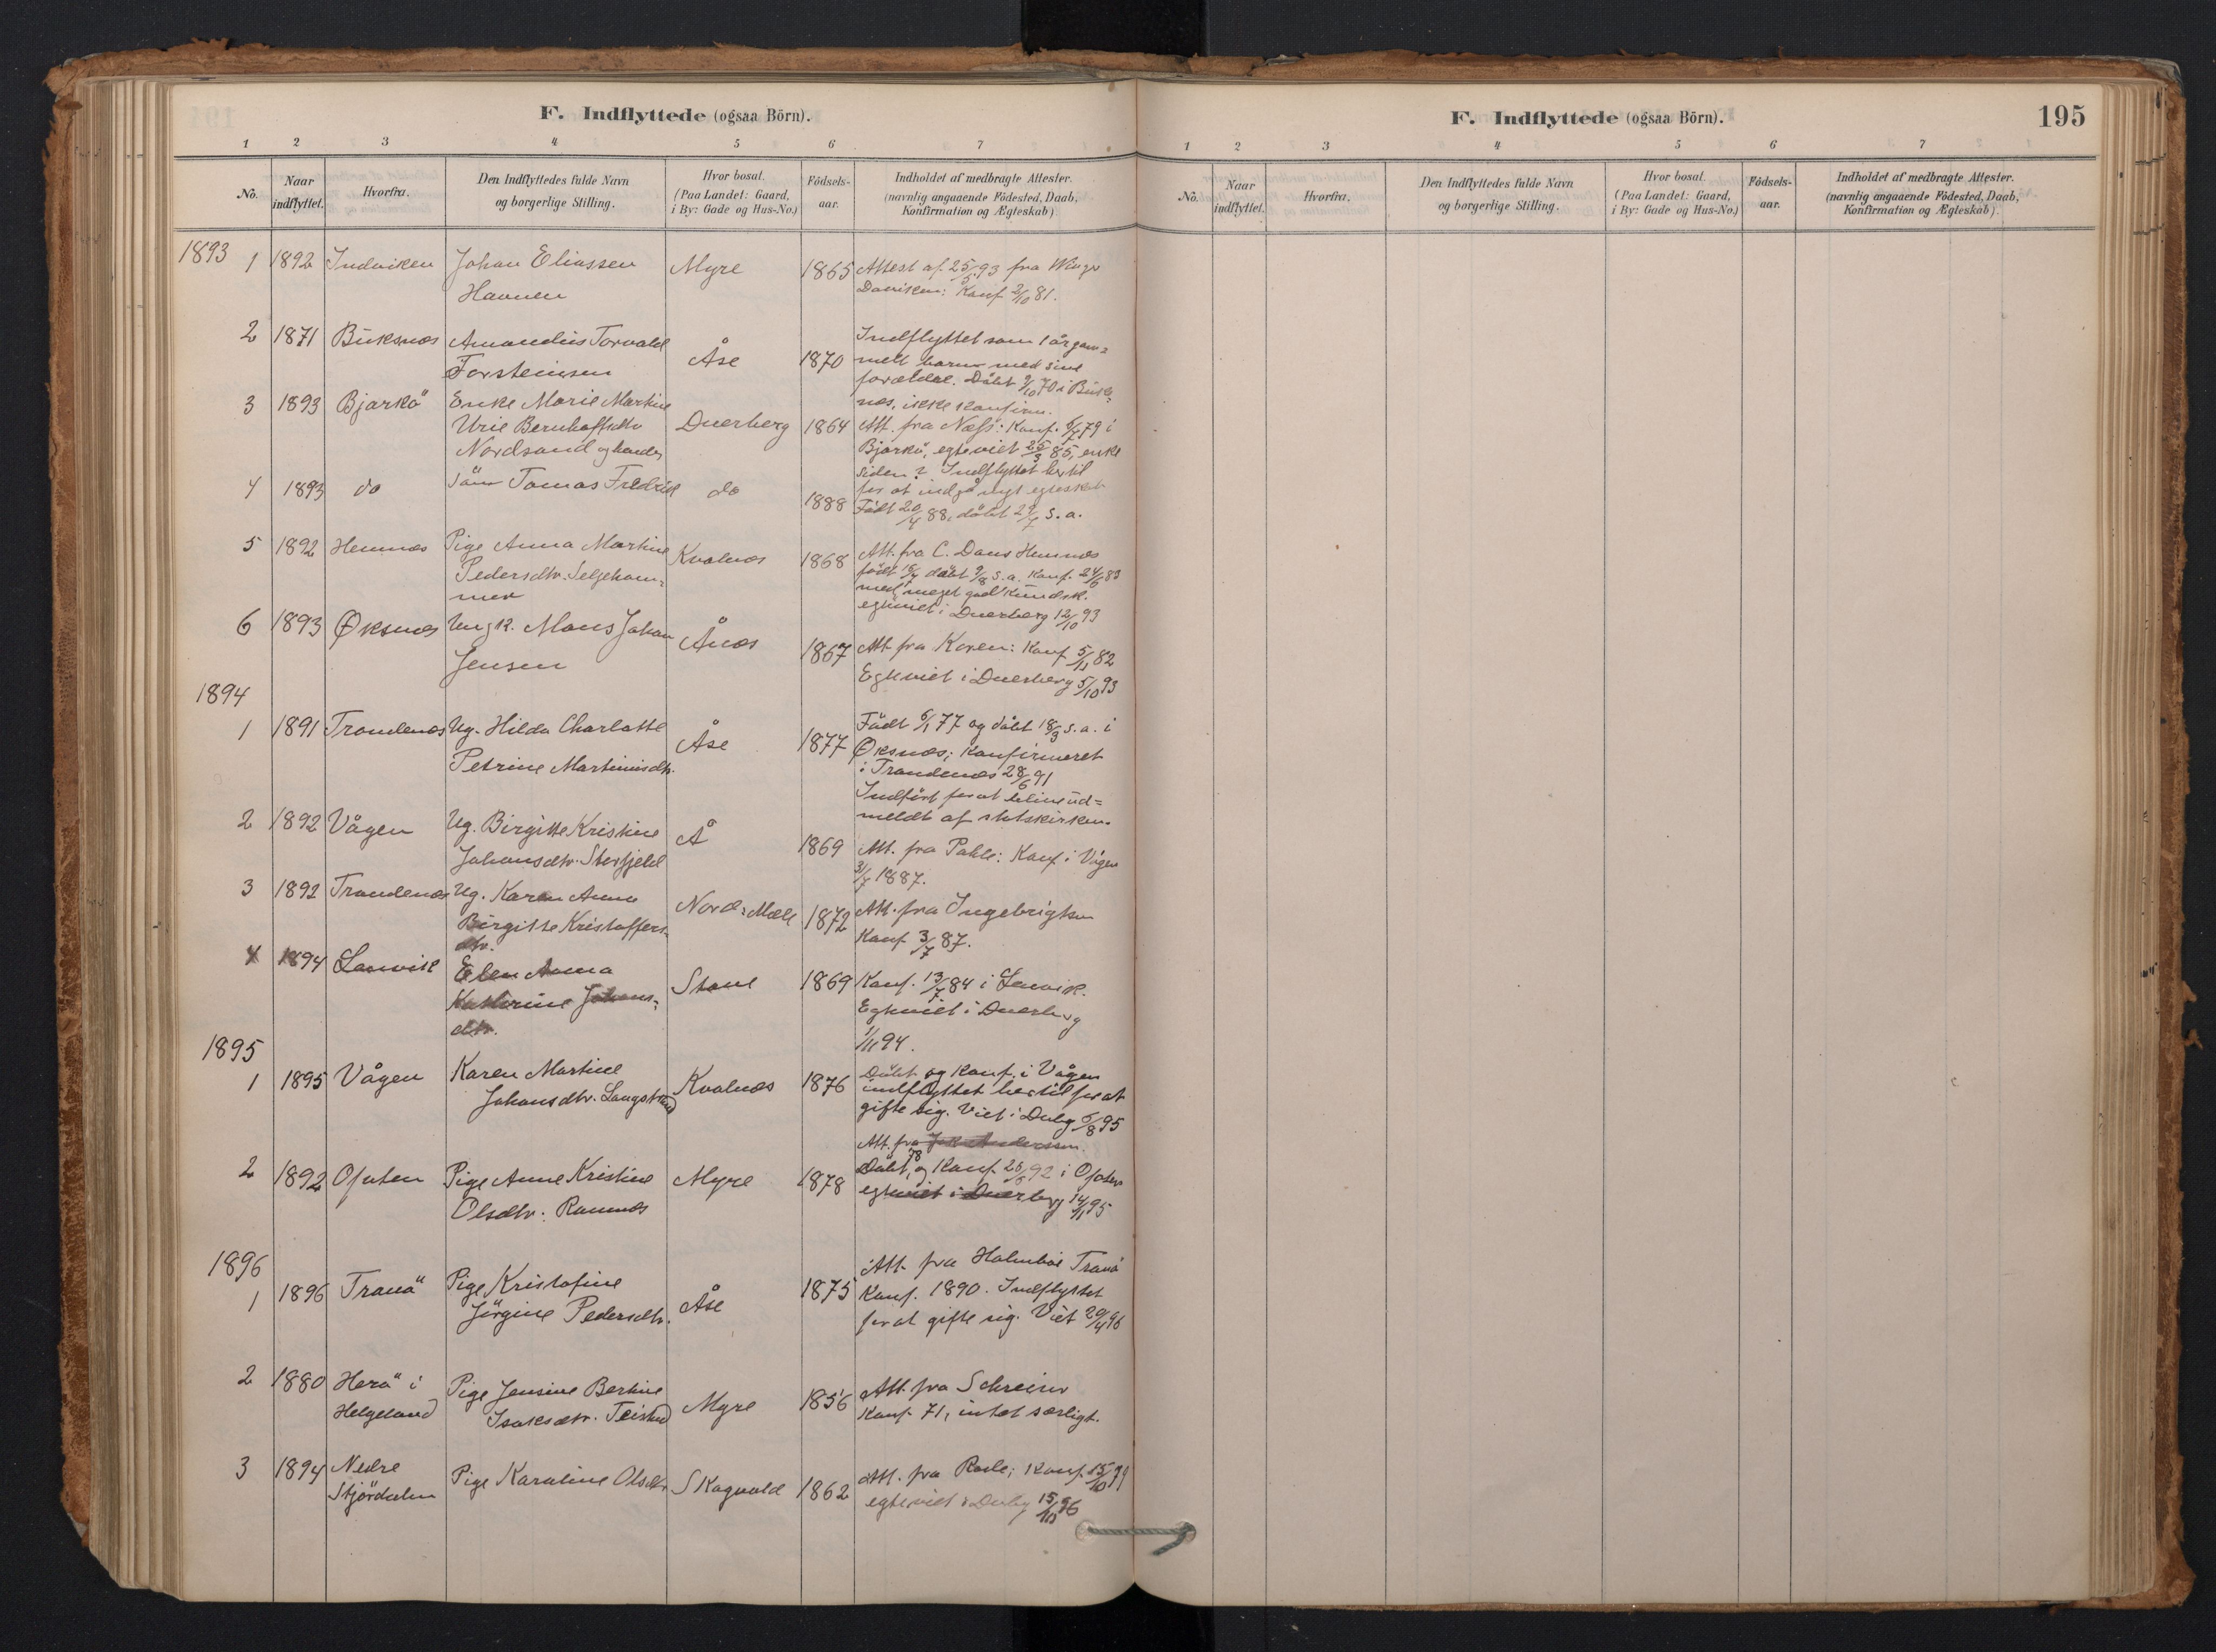 F. Indflyttede (ogsaa Börn).
1 2 3 4 5 6 7
No. Naar indflyttet. Hvorfra. Den Indflyttedes fulde Navn og borgerlige Stilling. Hvor bosat. (Paa Landet: Gaard, i By: Gade og Hus-No.) Födsels-aar. Indholdet af medbragte Attester. (navnlig angaaende Födested, Daab, Konfirmation og Ægteskab).
1893
1 1892 Indviken Johan Eliassen Myre 1865 Attest af 25/5 93 fra
Havnen Konf 2/10 81.
2 1871 Buksnæs Amandus Torvald Åse 1870 Indflyttet som 1 år gam=
Torsteinsen melt barn med sine
forældre. Döbt 9/10 70 i Buks=
næs, ikke konfirm.
3 1893 Bjarkö Enke Marie Martine Dverberg 1864 Att. fra Næss: Konf. 6/7 79 i
Urie Bernhoffsdtr Bjarkö, egteviet 25/3 85, enke
Nordsand og hendes siden ? Indflyttet hertil
4 1893 do sön Tomas Fredrik do 1888 for at indgå nyt egteskab
Födt 20/4 88, döbt 29/7 s. a.
5 1892 Hemnæs Pige Anna Martine Kvalnæs 1868 Att. fra C. Dans Hemnæs
Pedersdtr. Seljeham= födt 15/4 döbt 9/8 s. a. Konf. 24/6 83
mer med meget god kundsk.
egteviet i Dverberg 12/10 93
6 1893 Øksnes Ungk. Mons Johan Ånæs 1867 Att. fra Koren: Konf 5/11 82
Jensen Egteviet i Dverberg 5/10 93
1894
1 1891 Trondenæs Ug. Hilda Charlotte Åse 1877 Födt 6/1 77 og döbt 18/3 s. a. i
Petrine Martinusdtr. Øksnæs; Konfirmeret
i Trondenæs 28/6 91
Indfört for at blive ud=
meldt af statskirken.
2 1892 Vågen Ug. Birgitte Kristine Å 1869 Att. fra Pahle: Konf. i Vågen
Johansdtr. Storfjeld 3/7 1887.
3 1892 Trondenæs Ug. Karen Anna Nordr. Mele 1872 Att. fra Ingebrigtsen
Birgitte Kristoffers= Konf 3/7 87.
dtr.
4 1894 Lenvik Elen Anna Stave 1869 Konf. 13/7 84 i Lenvik.
Kathrine Johans= Egteviet i Dverberg
dtr. 1/11 94.
1895
1 1895 Vågen Karen Martine Kvalnæs 1876 Döbt og Konf. i Vågen
Johansdtr. Langstrand indflyttet hertil for at
gifte sig. Viet i Dvbg 6/8 95
Att. fra Anderssen.
2 1892 Ofoten Pige Anne Kristine Myre 1878 Döbt 78 og Konf. 26/6 92 i Ofoten
Olsdtr. Ramnæs egteviet i Dverberg 14/1 95
1896
1 1896 Tranö Pige Kristofine Åse 1875 Att. fra Holmboe Tranö
Jörgine Pedersdtr. Konf. 1890. Indflyttet
for at gifte sig. Viet 20/4 96
2 1880 Herö i Pige Jensine Bertine Myre 1856 Att. fra Schreiner
Helgeland Isaksdtr. Konf. 71, intet særligt.
3 1894 Nedre Pige Karoline Olsdtr Skogvold 1862 Att. fra Konf. 15/10 79
Stjördalen egteviet i Dvbg 15/10 96
F. Indflyttede (ogsaa Börn). 195
1 2 3 4 5 6 7
No. Naar indflyttet. Hvorfra. Den Indflyttedes fulde Navn og borgerlige Stilling. Hvor bosat. (Paa Landet: Gaard, i By: Gade og Hus-No.) Födsels-aar. Indholdet af medbragte Attester. (navnlig angaaende Födested, Daab, Konfirmation og Ægteskab).